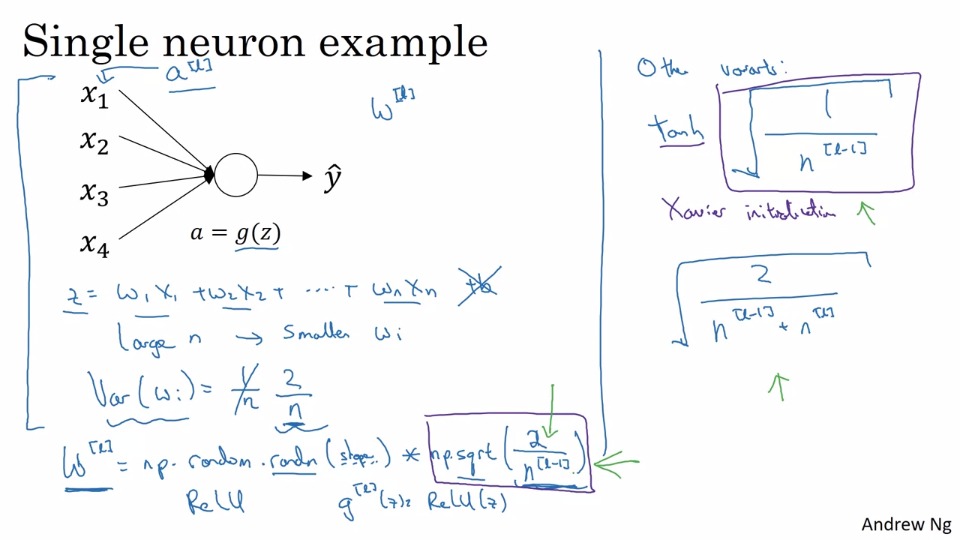 Single neuron example
a^[l]
x₁
x₂
x₃
x₄
ŷ
a = g(z)
W^[l]
z = w₁x₁ + w₂x₂ + ····· + wₙxₙ +b
Large n → Smaller wᵢ
Var(wᵢ) = 1/n 2/n
W^[l] = np.random.randn(shape) * np.sqrt(2/n^[l-1])
ReLU g^[l](z) = ReLU(z)
Other variants:
tanh √(1/n^[l-1])
Xavier initialization
√(2/(n^[l-1] + n^[l]))
Andrew Ng